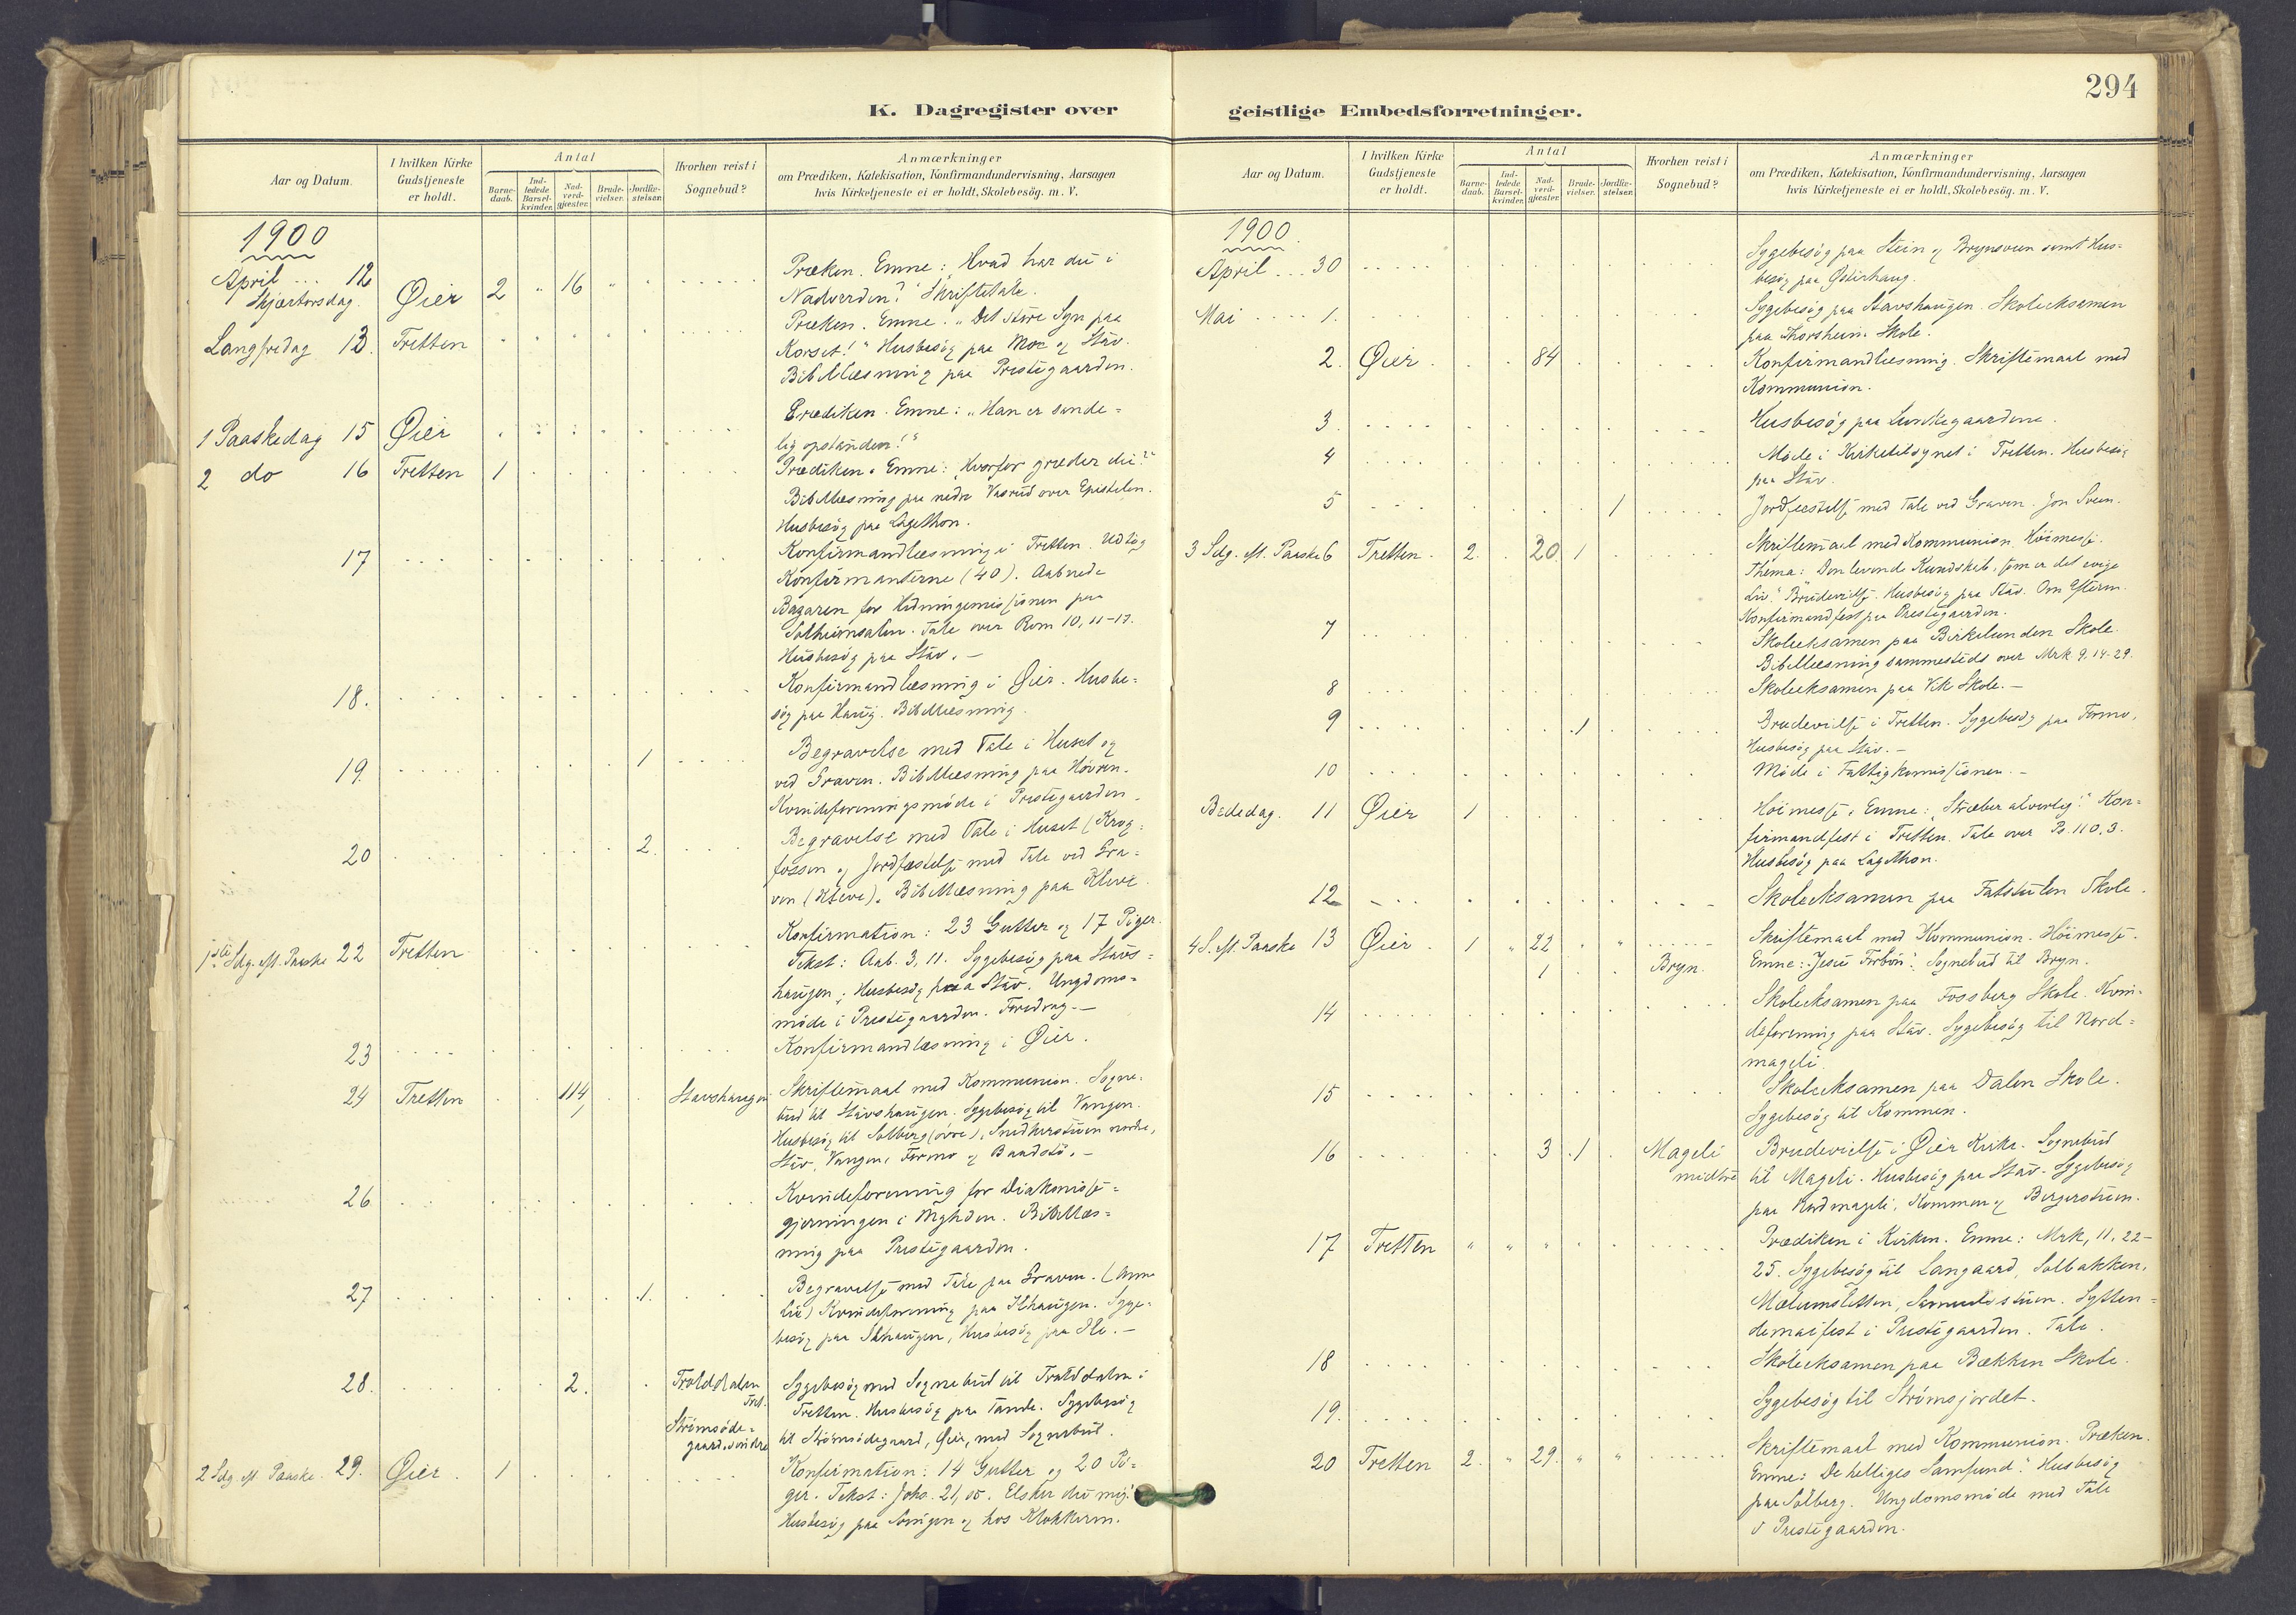 294
K. Dagregister over geistlige Embedsforretninger.
Aar og Datum.
I hvilken Kirke
Gudstjeneste
er holdt.
Antal
Barne-
daab.
Ind-
ledede
Barsel-
kvinder.
Nad-
verd-
gjæster.
Brude-
vielser.
Jordfæ-
stelser.
Hvorhen reist i
Sognebud?
Anmærkninger
om Prædiken, Katekisation, Konfirmandundervisning, Aarsagen
hvis Kirketjeneste ei er holdt, Skolebesög. m. V.
1900
April 12
Skjærtorsdag. Øier 2 " 16 " "
Præken. Emne: "Hvad har du i
Nadverden?" Skriftetale.
Langfredag 13. Tretten
Præken. Emne: "Det store Syn paa
Korset!" Husbesøg paa Moe og Stav.
Bibellæsning paa Prestegaarden.
1 Paaskedag 15 Øier
Prædiken. Emne: "Han er sande=
lig opstanden!"
2 do 16 Tretten 1
Prædiken. Emne: "Hvorfor græder du?"
Bibellæsning paa nedre Vasrud over Epistelen.
Husbesøg paa Lagethon.
17
Konfirmandlæsning i Tretten. Udtog
Konfirmanterne (40). Aabnede
Bazaren for Hedningemissionen paa
Solheimsalen. Tale over Rom 10, 11-17.
Husbesøg paa Stav.-
18.
Konfirmandlæsning i Øier. Husbe=
søg paa Haug. Bibellæsning.
19. 1
Begravelse med Tale i Huset og
ved Graven. Bibellæsning paa Høvren.
Kvindeforeningsmøde i Prestegaarden.
20 2.
Begravelse med Tale i Huset (Krog=
fossen og Jordfæstelse med Tale ved Gra=
ven (Kleve). Bibellæsning paa Kleve.
1ste Sdg. eft. Paaske 22 Tretten
Konfirmation: 23 Gutter og 17 Piger.
Tekst: Aab. 3, 11. Sygebesøg paa Stavs=
haugen; Husbesøg paa Stav. Ungdoms=
møde i Prestegaarden. Foredrag.-
23
Konfirmandlæsning i Øier.
24 Tretten 114 Stavshaugen
Skriftemaal med Kommunion. Sogne=
bud til Stavshaugen. Sygebesøg til Vangen.
Husbesøg til Solberg (øvre), Snedkerstuen nordre,
Stav, Vangen, Formo og Baadstø.-
26
Kvindeforening for Diakonisse=
gjerningen i Bygden. Bibellæs=
ning paa Prestegaarden.
27 1.
Begravelse med Tale paa Graven. (Anne
Lie) Kvindeforening paa Skhaugen. Syge=
besøg paa Skhaugen, Husbesøg paa Ile.-
28. 2. Trolddalen
Tret.
Strømsøde=
gaard søndre
Sygebesøg med Sognebud til Trolddalen i
Tretten. Husbesøg paa Tande. Sygebesøg
til Strømsødegaard, Øier, med Sognebud.
2 Sdg. eft. Paaske. 29. Øier. 1
Konfirmation: 14 Gutter og 20 Pi=
ger. Tekst: Johs. 21, 15. Elsker du mig!
Husbesøg paa Songen og hos Klokkeren.
Aar og Datum.
I hvilken Kirke
Gudstjeneste
er holdt.
Antal
Barne-
daab.
Ind-
ledede
Barsel-
kvinder.
Nad-
verd-
gjæster.
Brude-
vielser.
Jordfæ-
stelser.
Hvorhen reist i
Sognebud?
Anmærkninger
om Prædiken, Katekisation, Konfirmandundervisning, Aarsagen
hvis Kirketjeneste ei er holdt, Skolebesög. m. V.
1900.
April 30
Sygebesøg paa Stein og Brynsveen samt Hus=
besøg paa Østerhaug.
Mai 1.
Sygebesøg paa Stavshaugen. Skoleeksamen
paa Thorsheim Skole.
2. Øier 84
Konfirmandlæsning. Skriftemaal med
Kommunion.
3.
Husbesøg paa Lunkegaardene.
4
Møde i Kirketilsynet i Tretten. Husbesøg
paa Stav.
5 1
Jordfæstelse med Tale ved Graven. Jon Sveen.
3 Sdg. eft. Paaske 6 Tretten. 2. 20. 1
Skriftemaal med Kommunion. Höimesse.
Thema: "Den levende Kundskab, som er det evige
Liv." Brudevielse. Husbesøg paa Stav. Om Efterm.
Konfirmandfest paa Prestegaarden.
7
Skoleeksamen paa Birkelunden Skole.
Bibellæsning sammesteds over Mrk. 9. 14-29.
8
Skoleeksamen paa Vik Skole.-
9 1
Brudevielse i Tretten. Sygebesøg paa Formo,
Husbesøg paa Stav.-
10
Møde i Fattigkomissionen.-
Bededag. 11 Øier 1
Höimesse. Emne: "Stræber alvorlig!" Kon=
firmandfest i Tretten. Tale over Ps. 110, 3.
Husbesøg paa Lagethon.
12
Skoleeksamen paa Fatstulen Skole.
4 S. eft. Paaske 13 Øier 1 " 22 " "
1 Bryn.
Skriftemaal med Kommunion. Höimesse.
Emne: "Jesu Forbøn". Sognebud til Bryn.
14
Skoleeksamen paa Fossberg Skole. Kvin=
deforening paa Stav. Sygebesøg til Nord=
mageli.
15
Skoleeksamen paa Dalen Skole.
Sygebesøg til Kommen.
16 3 1 Mageli
midtre
Brudevielse i Øier Kirke. Sognebud
til Mageli. Husbesøg paa Stav. Sygebesøg
paa Nordmageli, Kommen og Bergerstuen.
17 Tretten " " "
Prædiken i Kirken. Emne: Mrk, 11, 22-
25. Sygebesøg til Langaard, Solbakken,
Mælumsletten, Samuelsstuen. Sytten=
demaifest i Prestegaarden. Tale.
18
Skoleeksamen paa Bækken Skole.
Sygebesøg til Strømsjordet.
19.
20 Tretten 2. " 29. " "
Skriftemaal med Kommunion. Præken.
Emne: "De helliges Samfund." Husbesøg
paa Solberg. Ungdomsmøde med Tale
i Prestegaarden.